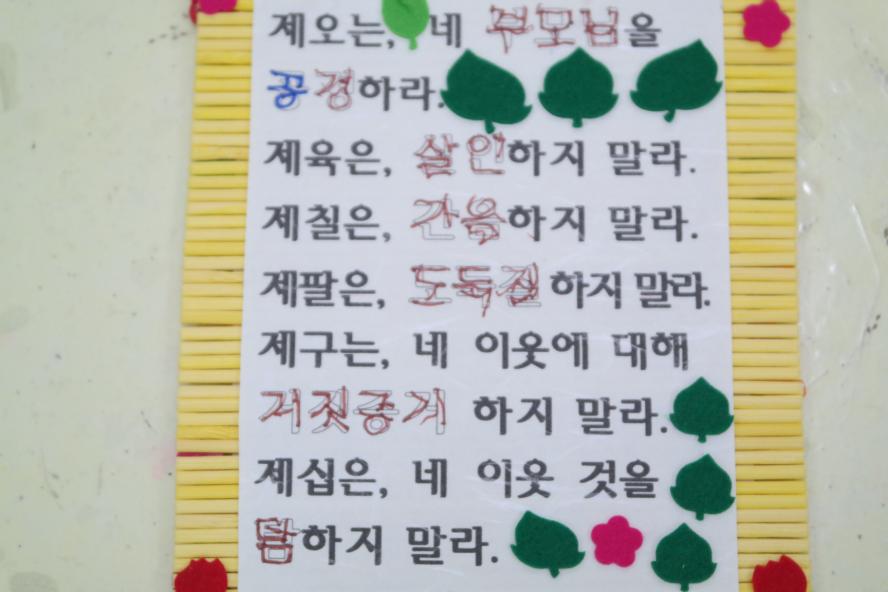 제오는, 네 부모님을
공경하라.
제육은, 살인하지 말라.
제칠은, 간음하지 말라.
제팔은, 도둑질하지 말라.
제구는, 네 이웃에 대해
거짓증거 하지 말라.
제십은, 네 이웃 것을
탐하지 말라.